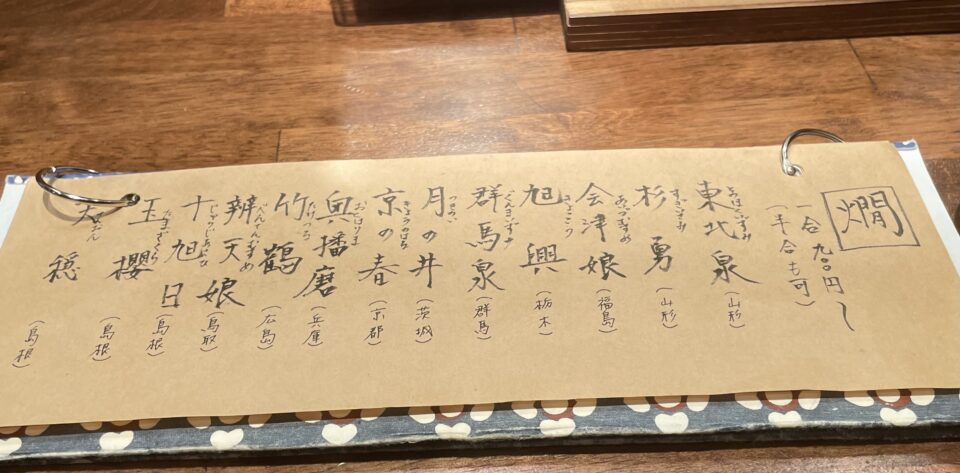 燗
一合 九〇〇円〜
(半合も可)
東北泉 とうほくいずみ (山形)
杉勇 すぎいさみ (山形)
会津娘 あいづむすめ (福島)
旭興 きょくこう (栃木)
群馬泉 ぐんまいずみ (群馬)
月の井 つきのい (茨城)
京の春 きょうのはる (京都)
奥播磨 おくはりま (兵庫)
竹鶴 たけつる (広島)
辨天娘 べんてんむすめ (鳥取)
十旭日 じゅうじあさひ (島根)
玉櫻 たまざくら (島根)
天穏 (島根)